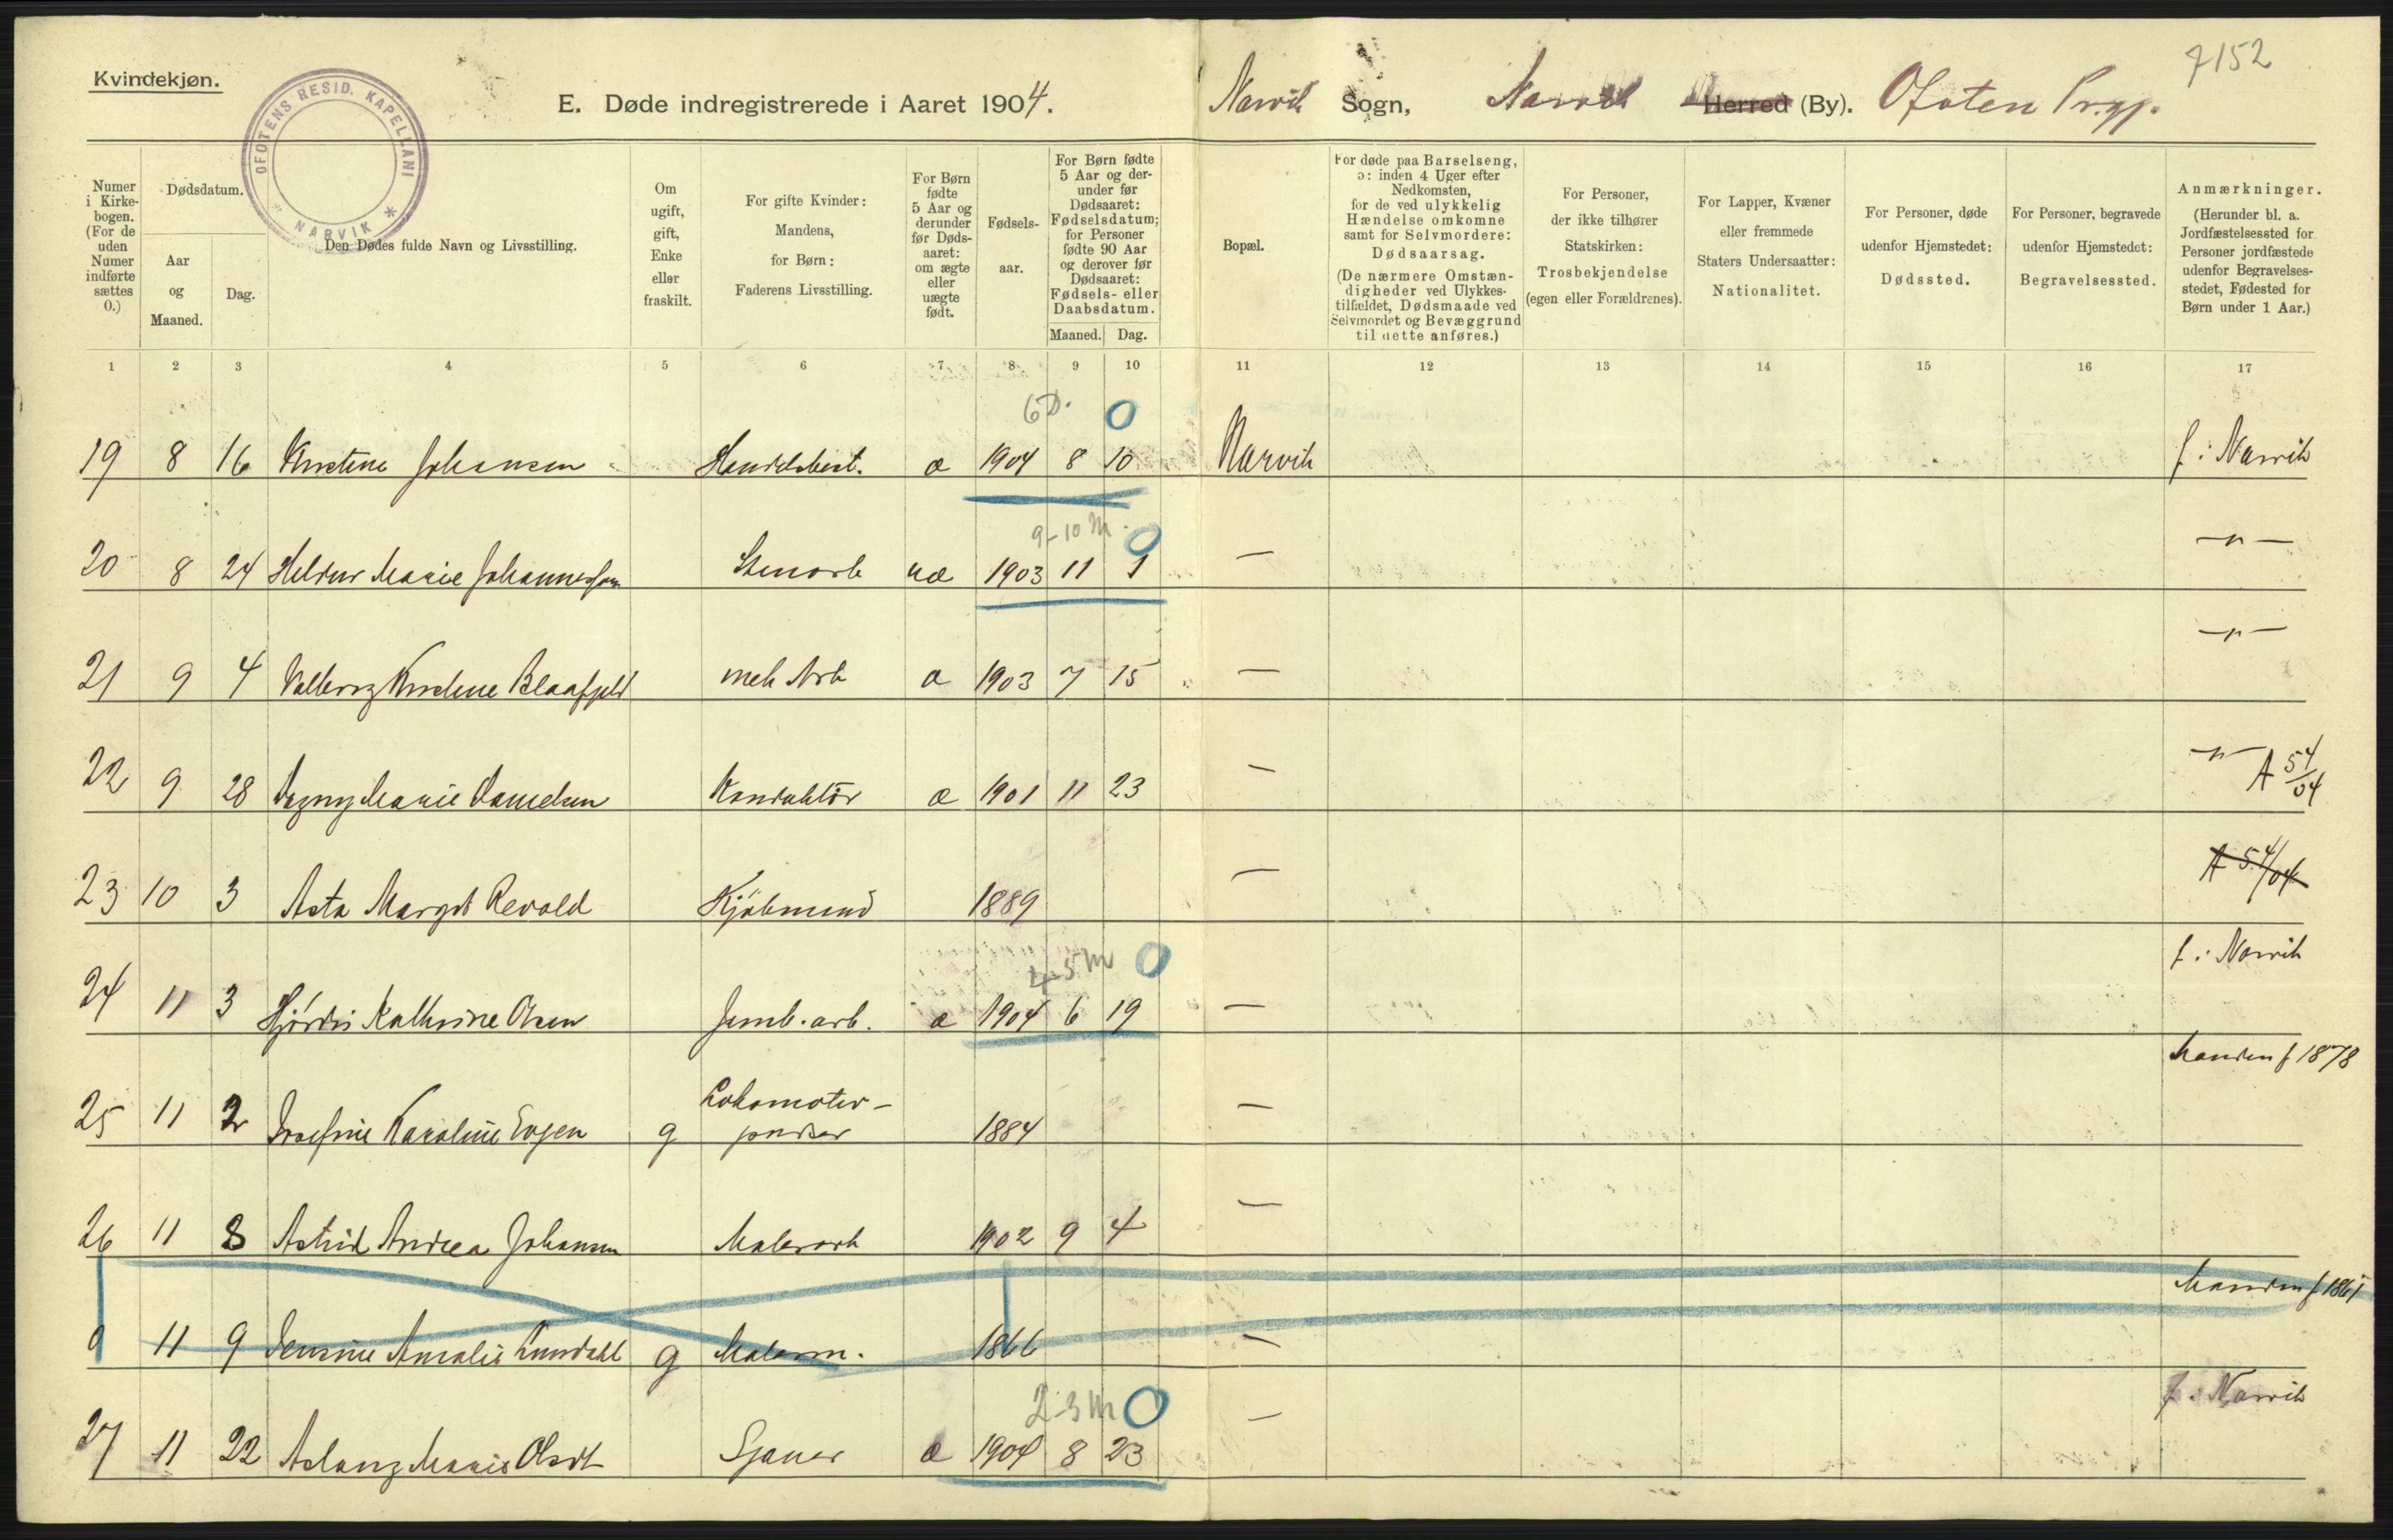 7152
Kvindekjøn.
OFOTENS RESID. KAPELLANI * NARVIK *
E. Døde indregistrerede i Aaret 1904. Narvik Sogn, Narvik Herred (By). Ofoten Prgj.
Numer i Kirke-bogen. (For de uden Numer indførte sættes 0.)
Dødsdatum.
Aar og Maaned.
Dag.
Den Dødes fulde Navn og Livsstilling.
Om ugift, gift, Enke eller fraskilt.
For gifte Kvinder: Mandens, for Børn: Faderens Livsstilling.
For Børn fødte 5 Aar og derunder før Døds-aaret: om ægte eller uægte født.
Fødsels-aar.
For Børn fødte 5 Aar og der-under før Dødsaaret: Fødselsdatum; for Personer fødte 90 Aar og derover før Dødsaaret: Fødsels- eller Daabsdatum.
Maaned. Dag.
Bopæl.
For døde paa Barselseng, ɔ: inden 4 Uger efter Nedkomsten, for de ved ulykkelig Hændelse omkomne samt for Selvmordere: Dødsaarsag. (De nærmere Omstæn-digheder ved Ulykkes-tilfældet, Dødsmaade ved Selvmordet og Bevæggrund til dette anføres.)
For Personer, der ikke tilhører Statskirken: Trosbekjendelse (egen eller Forældrenes).
For Lapper, Kvæner eller fremmede Staters Undersaatter: Nationalitet.
For Personer, døde udenfor Hjemstedet: Dødssted.
For Personer, begravede udenfor Hjemstedet: Begravelsessted.
Anmærkninger. (Herunder bl. a. Jordfæstelsessted for Personer jordfæstede udenfor Begravelses-stedet, Fødested for Børn under 1 Aar.)
1 2 3 4 5 6 7 8 9 10 11 12 13 14 15 16 17
6 D. 0
19 8 16 Kristine Johansen Handelsbest. æ 1904 8 10 Narvik f. i Narvik
9-10 M. 0
20 8 24 Marie Johannessen Stenarb uæ 1903 11 1 — —"—
21 9 4 Valborg Kristine Blaafjeld mek Arb æ 1903 7 15 — —"—
22 9 28 Dagny Marie Danielsen Konduktör æ 1901 11 23 — —"— A 54/04
23 10 3 Asta Margit Revold Kjøbmand 1889 — A 54/04
4-5 M 0
24 11 3 Hjørdis Kathrine Olsen Jernb. arb. æ 1904 6 19 — f. i Narvik
25 11 2 Josefine Karoline Evjen g Lokomotiv-
pudser 1884 — Manden f 1878
26 11 8 Astrid Andrea Johansen Malerarb 1902 9 4 —
0 11 9 Jensine Amalie Lunddahl g Malerm. 1866 — Manden f 1861
2-3 M 0
27 11 22 Aslaug Marie Sjauer æ 1904 8 23 — f. i Narvik